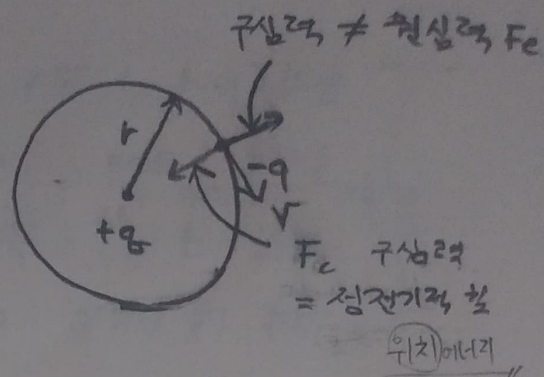 구심력 ≠ 원심력 Fe
r
-q
v
+q
Fc 구심력
= 정전기적 힘
위치에너지